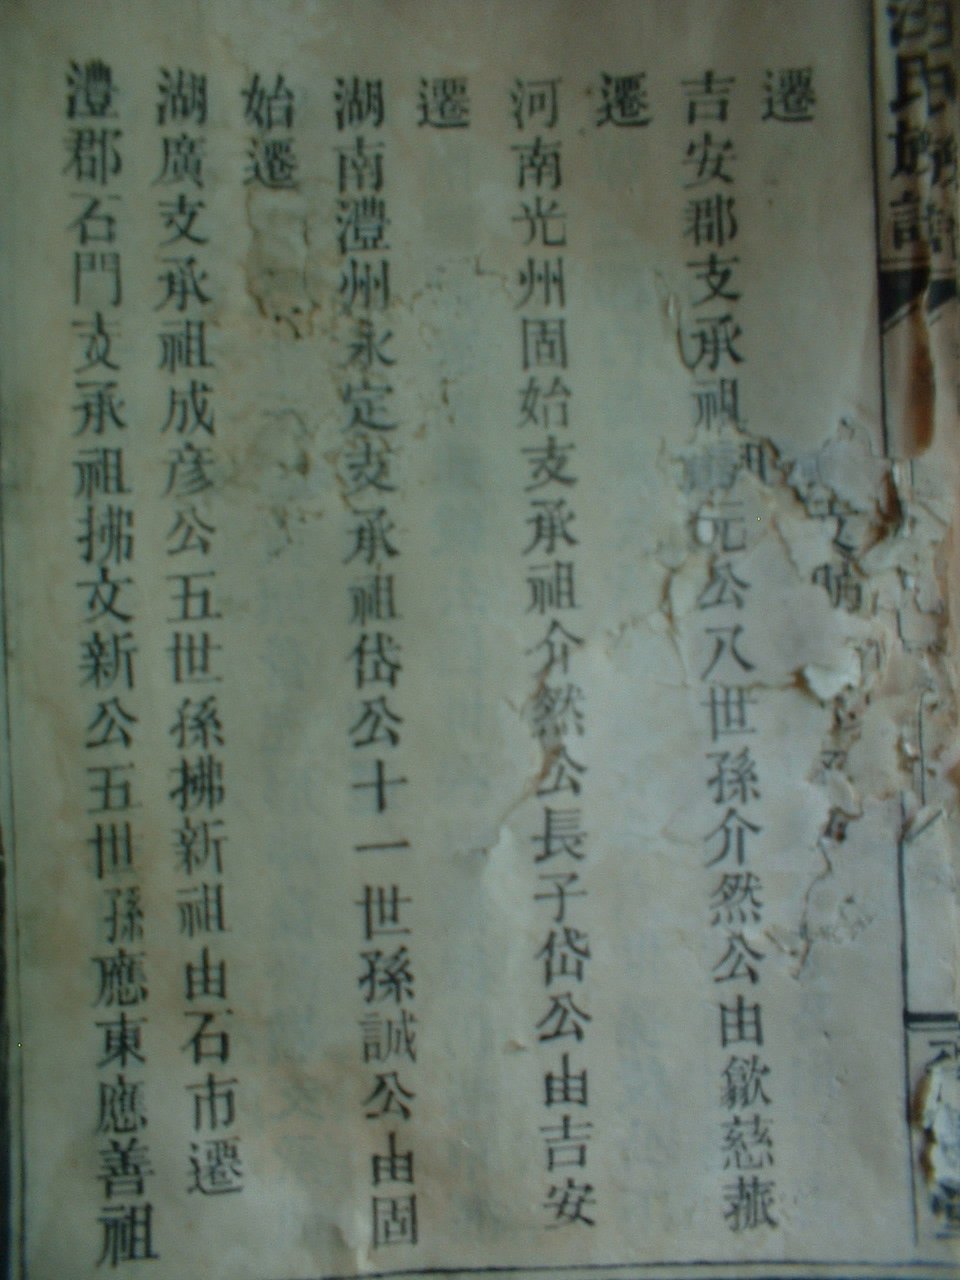 遷
吉安郡支承祖元公八世孫介然公由歙慈菰
遷
河南光州固始支承祖介然公長子岱公由吉安
遷
湖南澧州永定支承祖岱公十一世孫誠公由固
始遷
湖廣支承祖成彦公五世孫拂新祖由石市遷
澧郡石門支承祖拂文新公五世孫應東應善祖